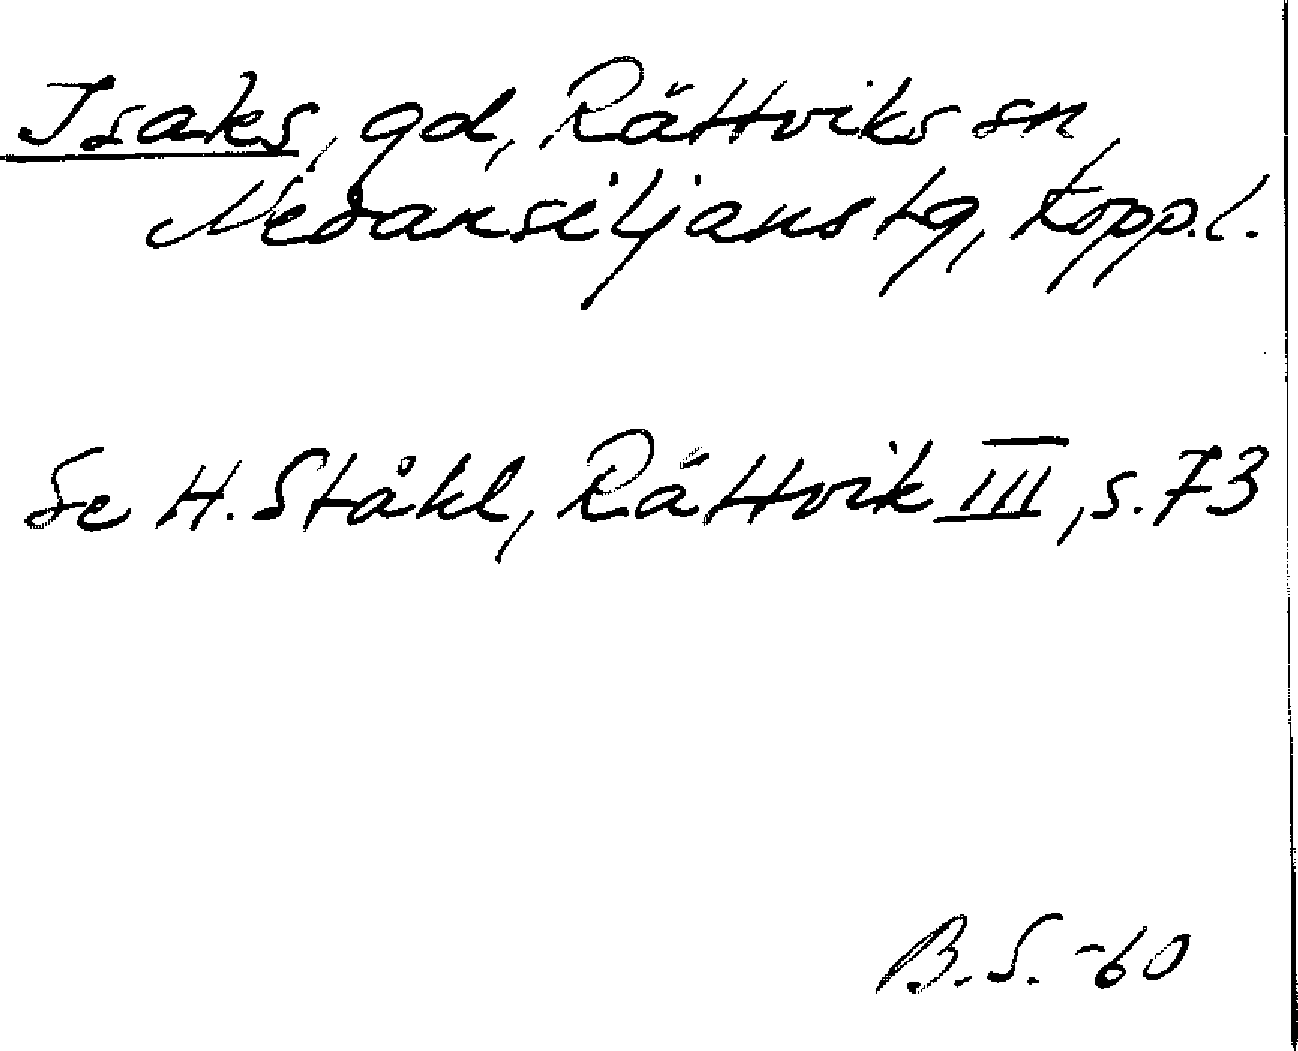 Isaks, gd, Rättviks sn,
Nedansiljans tg, Kopp.l.
Se H. Ståhl, Rättvik III, s. 73
B. S. -60